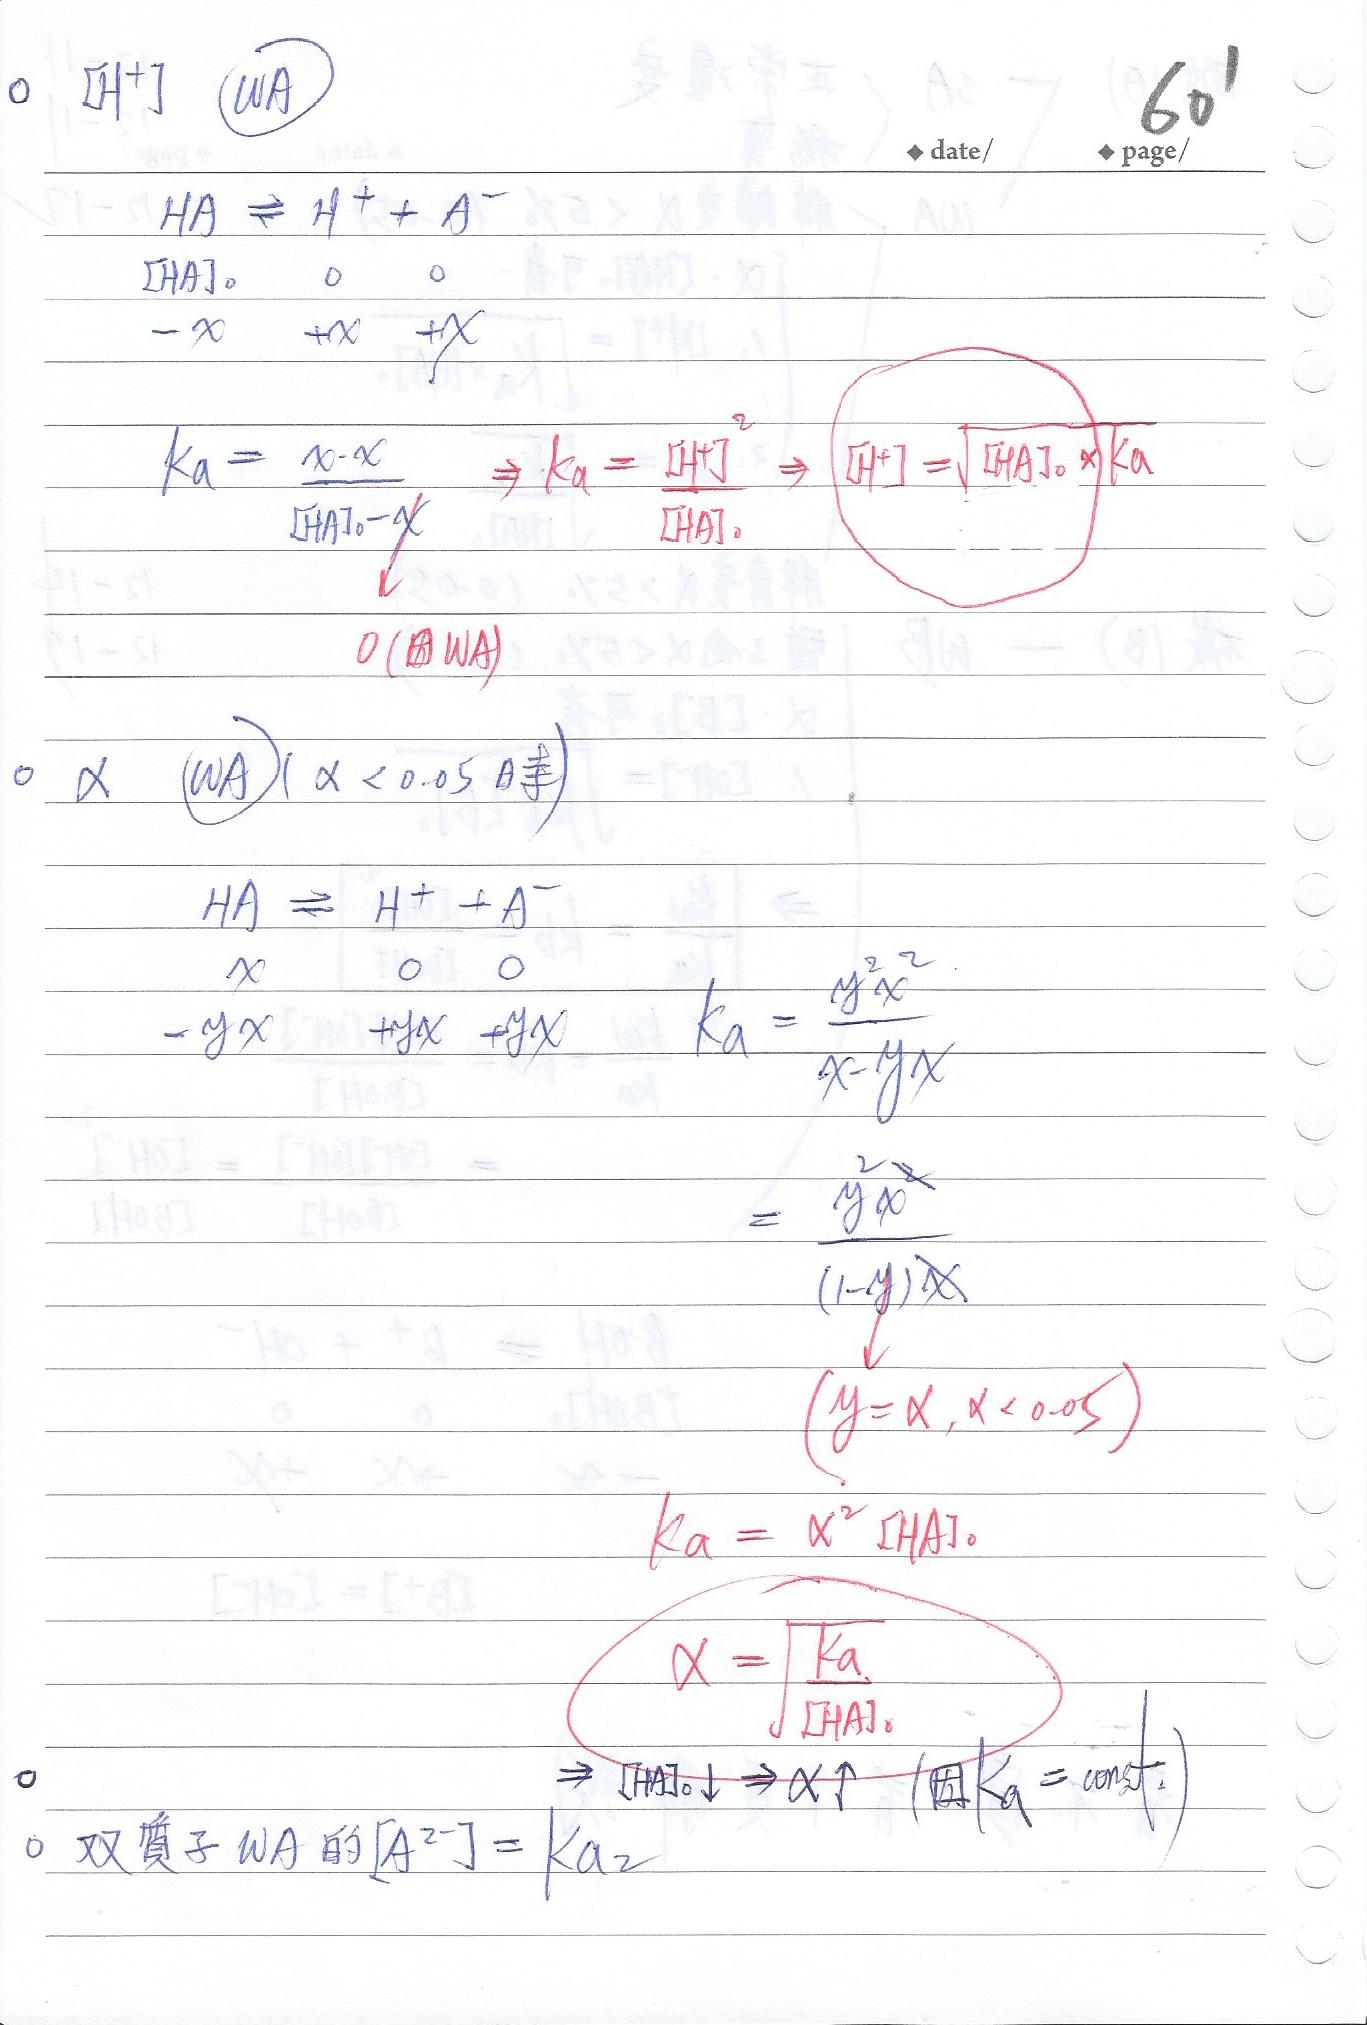 [H⁺] WA
60'
◆ date/ ◆ page/
HA ⇌ H⁺ + A⁻
[HA]₀ 0 0
-x +x +x
Ka = x·x / [HA]₀-x ⇒ Ka = [H⁺]² / [HA]₀ ⇒ [H⁺] = √[HA]₀ × Ka
0 (因 WA)
α WA (α < 0.05 時)
HA ⇌ H⁺ + A⁻
x 0 0
-yx +yx +yx
Ka = y²x² / x-yx
= y²x² / (1-y)x
(y = α, α < 0.05)
Ka = α² [HA]₀
α = √Ka / [HA]₀
⇒ [HA]₀↓ ⇒ α↑ (因 Ka = const.)
双質子 WA 的 [A²⁻] = Ka₂